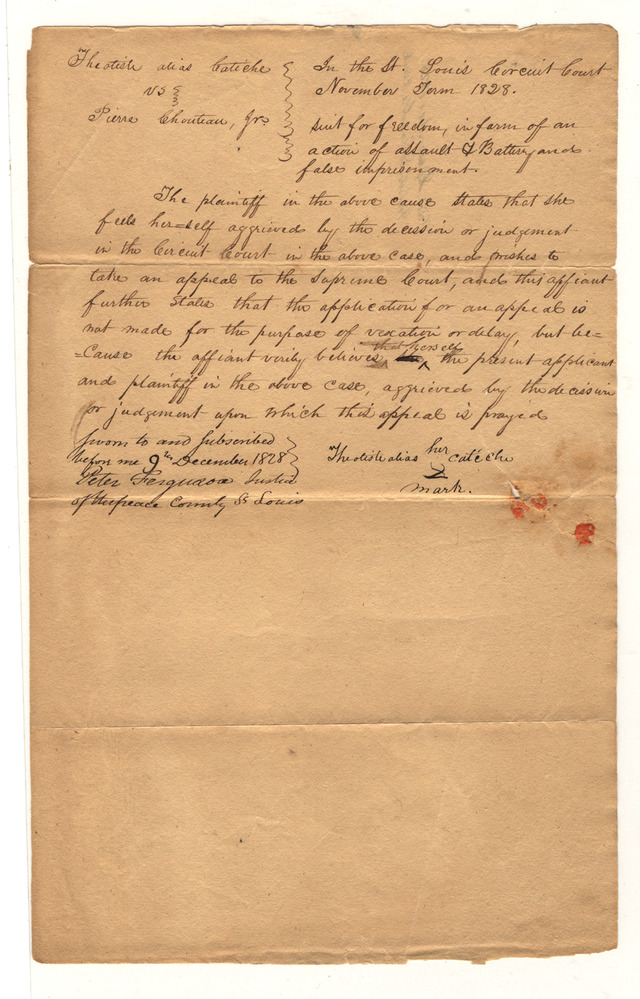 Theotiste alias Catiche
vs
Pierre Chouteau, Jr.
In the St. Louis Circuit Court
November Term 1828.
suit for freedom, in farm of an
action of assault & Battery and
false imprisonment.
The plaintiff in the above cause states that she
feels her=self aggrieved by the decission or judgement
in the Circuit Court in the above case, and wishes to
take an appeal to the Supreme Court, and this affiant
further states that the application for an appeal is
not made for the purpose of vexation or delay, but be=
=cause the affiant verily believes that herself the present applicant
and plaintiff in the above case, aggrieved by the decission
or judgement upon which this appeal is prayed
sworn to and subscribed
before me 9th December 1828
Peter Ferguson Justice
of the peace County St Louis
Theotiste alias her Catiche
mark.